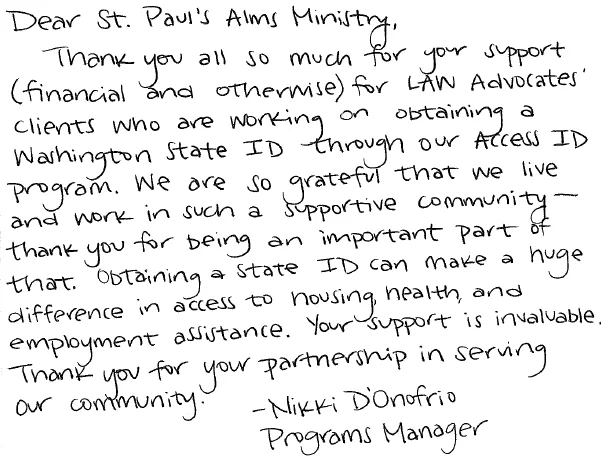 Dear St. Paul's Alms Ministry,
Thank you all so much for your support
(financial and otherwise) for LAW Advocates'
clients who are working on obtaining a
Washington State ID through our Access ID
program. We are so grateful that we live
and work in such a supportive community—
thank you for being an important part of
that. Obtaining a state ID can make a huge
difference in access to housing, health, and
employment assistance. Your support is invaluable.
Thank you for your partnership in serving
our community.
-Nikki D'Onofrio
Programs Manager